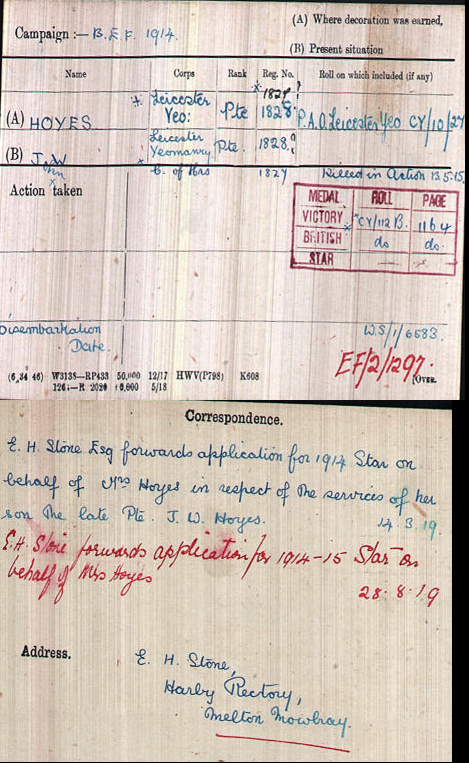 Campaign :— B.E.F. 1914.
(A) Where decoration was earned,
(B) Present situation
Name Corps Rank Reg. No. Roll on which included (if any)
(A) HOYES * Leicester Yeo: Pte 1828 P.A.O. Leicester Yeo CY/10/27
(B) J.W Leicester Yeomanry Pte. 1828
C. of Hrs 1827 Killed in Action 13.5.15
Action taken
MEDAL ROLL PAGE
VICTORY CY/112 B. 1164
BRITISH do do.
STAR — —
Disembarkation
Date.
W.S/1/6583.
EF/2/1297.
(6 34 46) W3138—RP433 50,000 12/17 HWV(P798) K608
5/18
[OVER.
Correspondence.
E. H. Stone Esq forwards application for 1914 Star on
behalf of Mrs Hoyes in respect of the services of her
son the late Pte. J. W. Hoyes.
14.3.19.
E.H. Stone forwards application for 1914-15 Star on
behalf of Mrs Hoyes
28.8.19
Address.
E. H. Stone,
Harby Rectory,
Melton Mowbray.